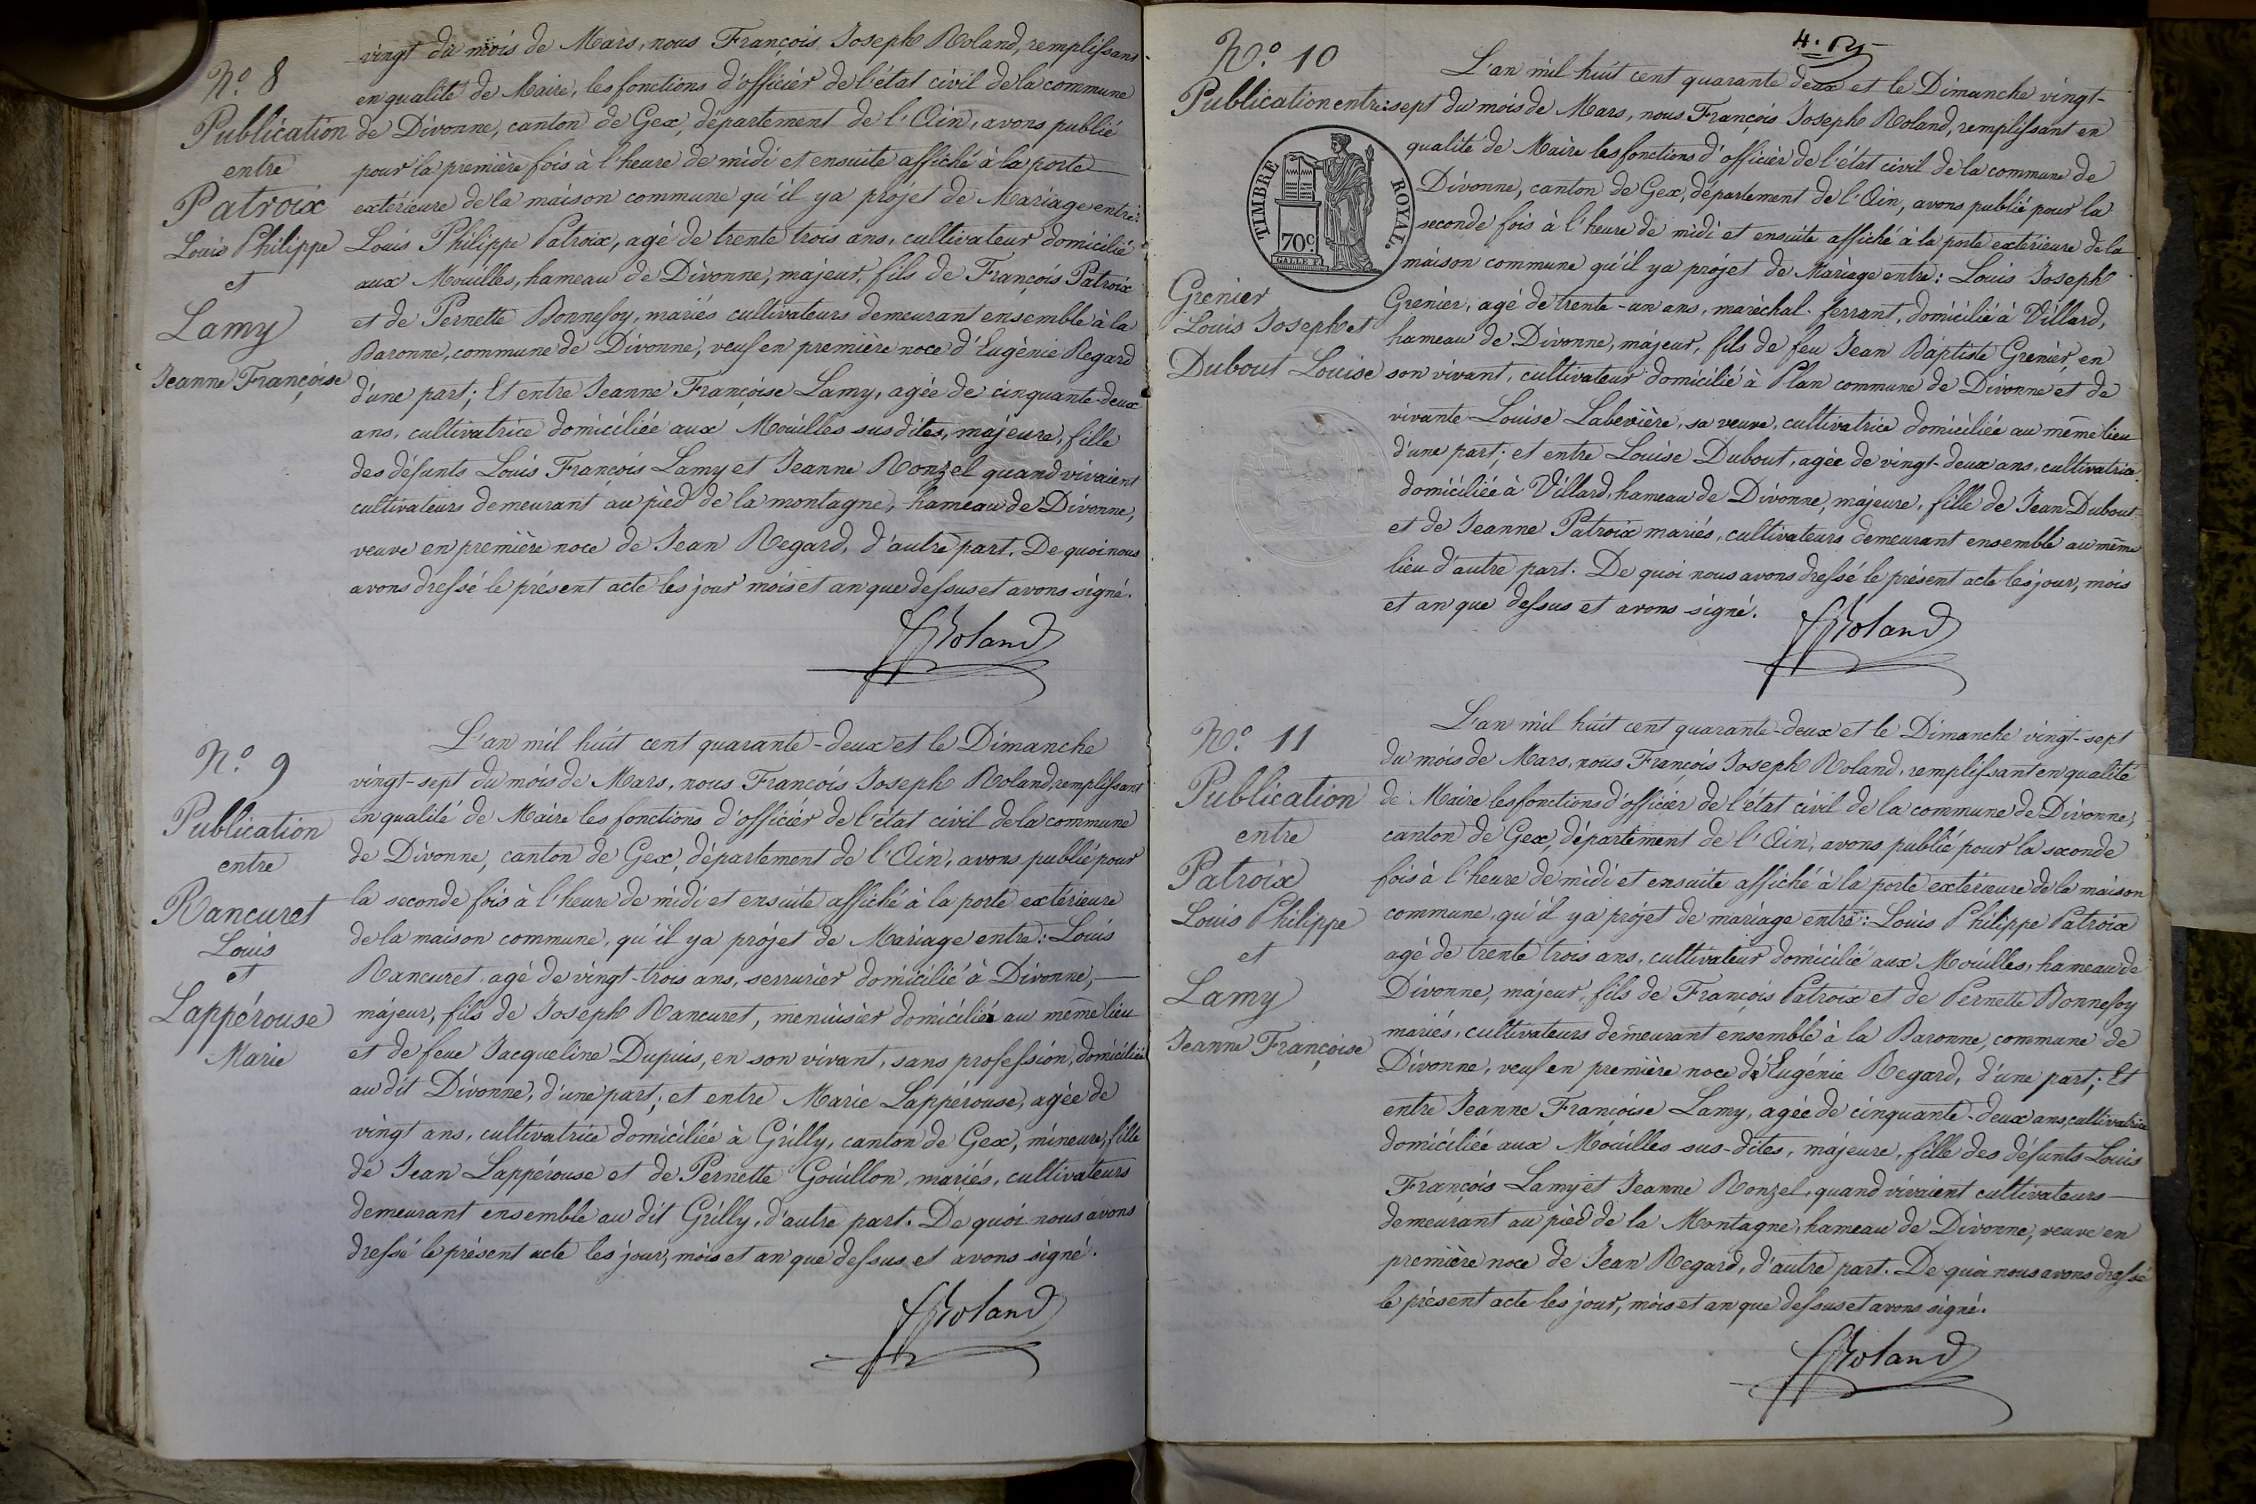 N.o 8
Publication
entre
Patroix
Louis Philippe
et
Lamy
Jeanne Françoise
vingt du mois de Mars, nous François Joseph Roland, remplissant
en qualité de Maire, les fonctions d'officier de l'état civil de la commune
de Divonne, canton de Gex, département de l'Ain, avons publié
pour la première fois à l'heure de midi et ensuite affiché à la porte
extérieure de la maison commune qu'il y a projet de Mariage entre:
Louis Philippe Patroix, agé de trente trois ans, cultivateur domicilié
aux Mouilles, hameau de Divonne, majeur, fils de François Patroix
et de Pernette Bonnefoy, mariés cultivateurs demeurant ensemble à la
Baronne, commune de Divonne, veuf en première noce d'Eugénie Regard
d'une part; Et entre Jeanne Françoise Lamy, agée de cinquante-deux
ans, cultivatrice domiciliée aux Mouilles susdites, majeure, fille
des défunts Louis François Lamy et Jeanne Ronzel quand vivaient
cultivateurs demeurant au pied de la montagne, hameau de Divonne,
veuve en première noce de Jean Regard, d'autre part. De quoi nous
avons dressé le présent acte les jour mois et an que dessus et avons signé.
FRoland
N.o 9
Publication
entre
Rancuret
Louis
et
Lappérouse
Marie
L'an mil huit cent quarante-deux et le Dimanche
vingt-sept du mois de Mars, nous François Joseph Roland, remplissant
en qualité de Maire les fonctions d'officier de l'état civil de la commune
de Divonne, canton de Gex, département de l'Ain, avons publié pour
la seconde fois à l'heure de midi et ensuite affiché à la porte extérieure
de la maison commune, qu'il y a projet de Mariage entre: Louis
Rancuret agé de vingt-trois ans, serrurier domicilié à Divonne,
majeur, fils de Joseph Rancuret, menuisier domicilié au même lieu
et de feue Jacqueline Dupuis, en son vivant, sans profession, domiciliée
au dit Divonne, d'une part; et entre Marie Lappérouse, agée de
vingt ans, cultivatrice domiciliée à Grilly, canton de Gex, mineure, fille
de Jean Lappérouse et de Pernette Gouillon, mariés, cultivateurs
demeurant ensemble au dit Grilly, d'autre part. De quoi nous avons
dressé le présent acte les jour, mois et an que dessus et avons signé.
FRoland
N.o 10
Publication entre:
TIMBRE ROYAL.
70c
Grenier
Louis Joseph et
Dubout Louise
L'an mil huit cent quarante deux et le Dimanche vingt-
sept du mois de Mars, nous François Joseph Roland, remplissant en
qualité de Maire les fonctions d'officier de l'état civil de la commune de
Divonne, canton de Gex, département de l'Ain, avons publié pour la
seconde fois à l'heure de midi et ensuite affiché à la porte extérieure de la
maison commune qu'il y a projet de Mariage entre: Louis Joseph
Grenier, agé de trente-un ans, maréchal-ferrant, domicilié à Villard,
hameau de Divonne, majeur, fils de feu Jean Baptiste Grenier, en
son vivant, cultivateur domicilié à Plan commune de Divonne et de
vivante Louise Labevière, sa veuve, cultivatrice domiciliée au même lieu
d'une part; et entre Louise Dubout, agée de vingt-deux ans, cultivatrice
domiciliée à Villard, hameau de Divonne, majeure, fille de Jean Dubout
et de Jeanne Patroix mariés, cultivateurs demeurant ensemble au même
lieu d'autre part. De quoi nous avons dressé le présent acte les jour, mois
et an que dessus et avons signé.
FRoland
N.o 11
Publication
entre
Patroix
Louis Philippe
et
Lamy
Jeanne Françoise
L'an mil huit cent quarante-deux et le Dimanche vingt-sept
du mois de Mars, nous François Joseph Roland, remplissant en qualité
de Maire les fonctions d'officier de l'état civil de la commune de Divonne,
canton de Gex, département de l'Ain, avons publié pour la seconde
fois à l'heure de midi et ensuite affiché à la porte extérieure de la maison
commune, qu'il y a projet de mariage entre: Louis Philippe Patroix
agé de trente trois ans, cultivateur domicilié aux Mouilles, hameau de
Divonne, majeur, fils de François Patroix et de Pernette Bonnefoy
mariés, cultivateurs demeurant ensemble à la Baronne, commune de
Divonne, veuf en première noce d'Eugénie Regard, d'une part; Et
entre Jeanne Françoise Lamy, agée de cinquante-deux ans, cultivatrice
domiciliée aux Mouilles sus-dites, majeure, fille des défunts Louis
François Lamy et Jeanne Ronzel, quand vivaient cultivateurs
demeurant au pied de la Montagne, hameau de Divonne, veuve en
première noce de Jean Regard, d'autre part. De quoi nous avons dressé
le présent acte les jour, mois et an que dessus et avons signé.
FRoland